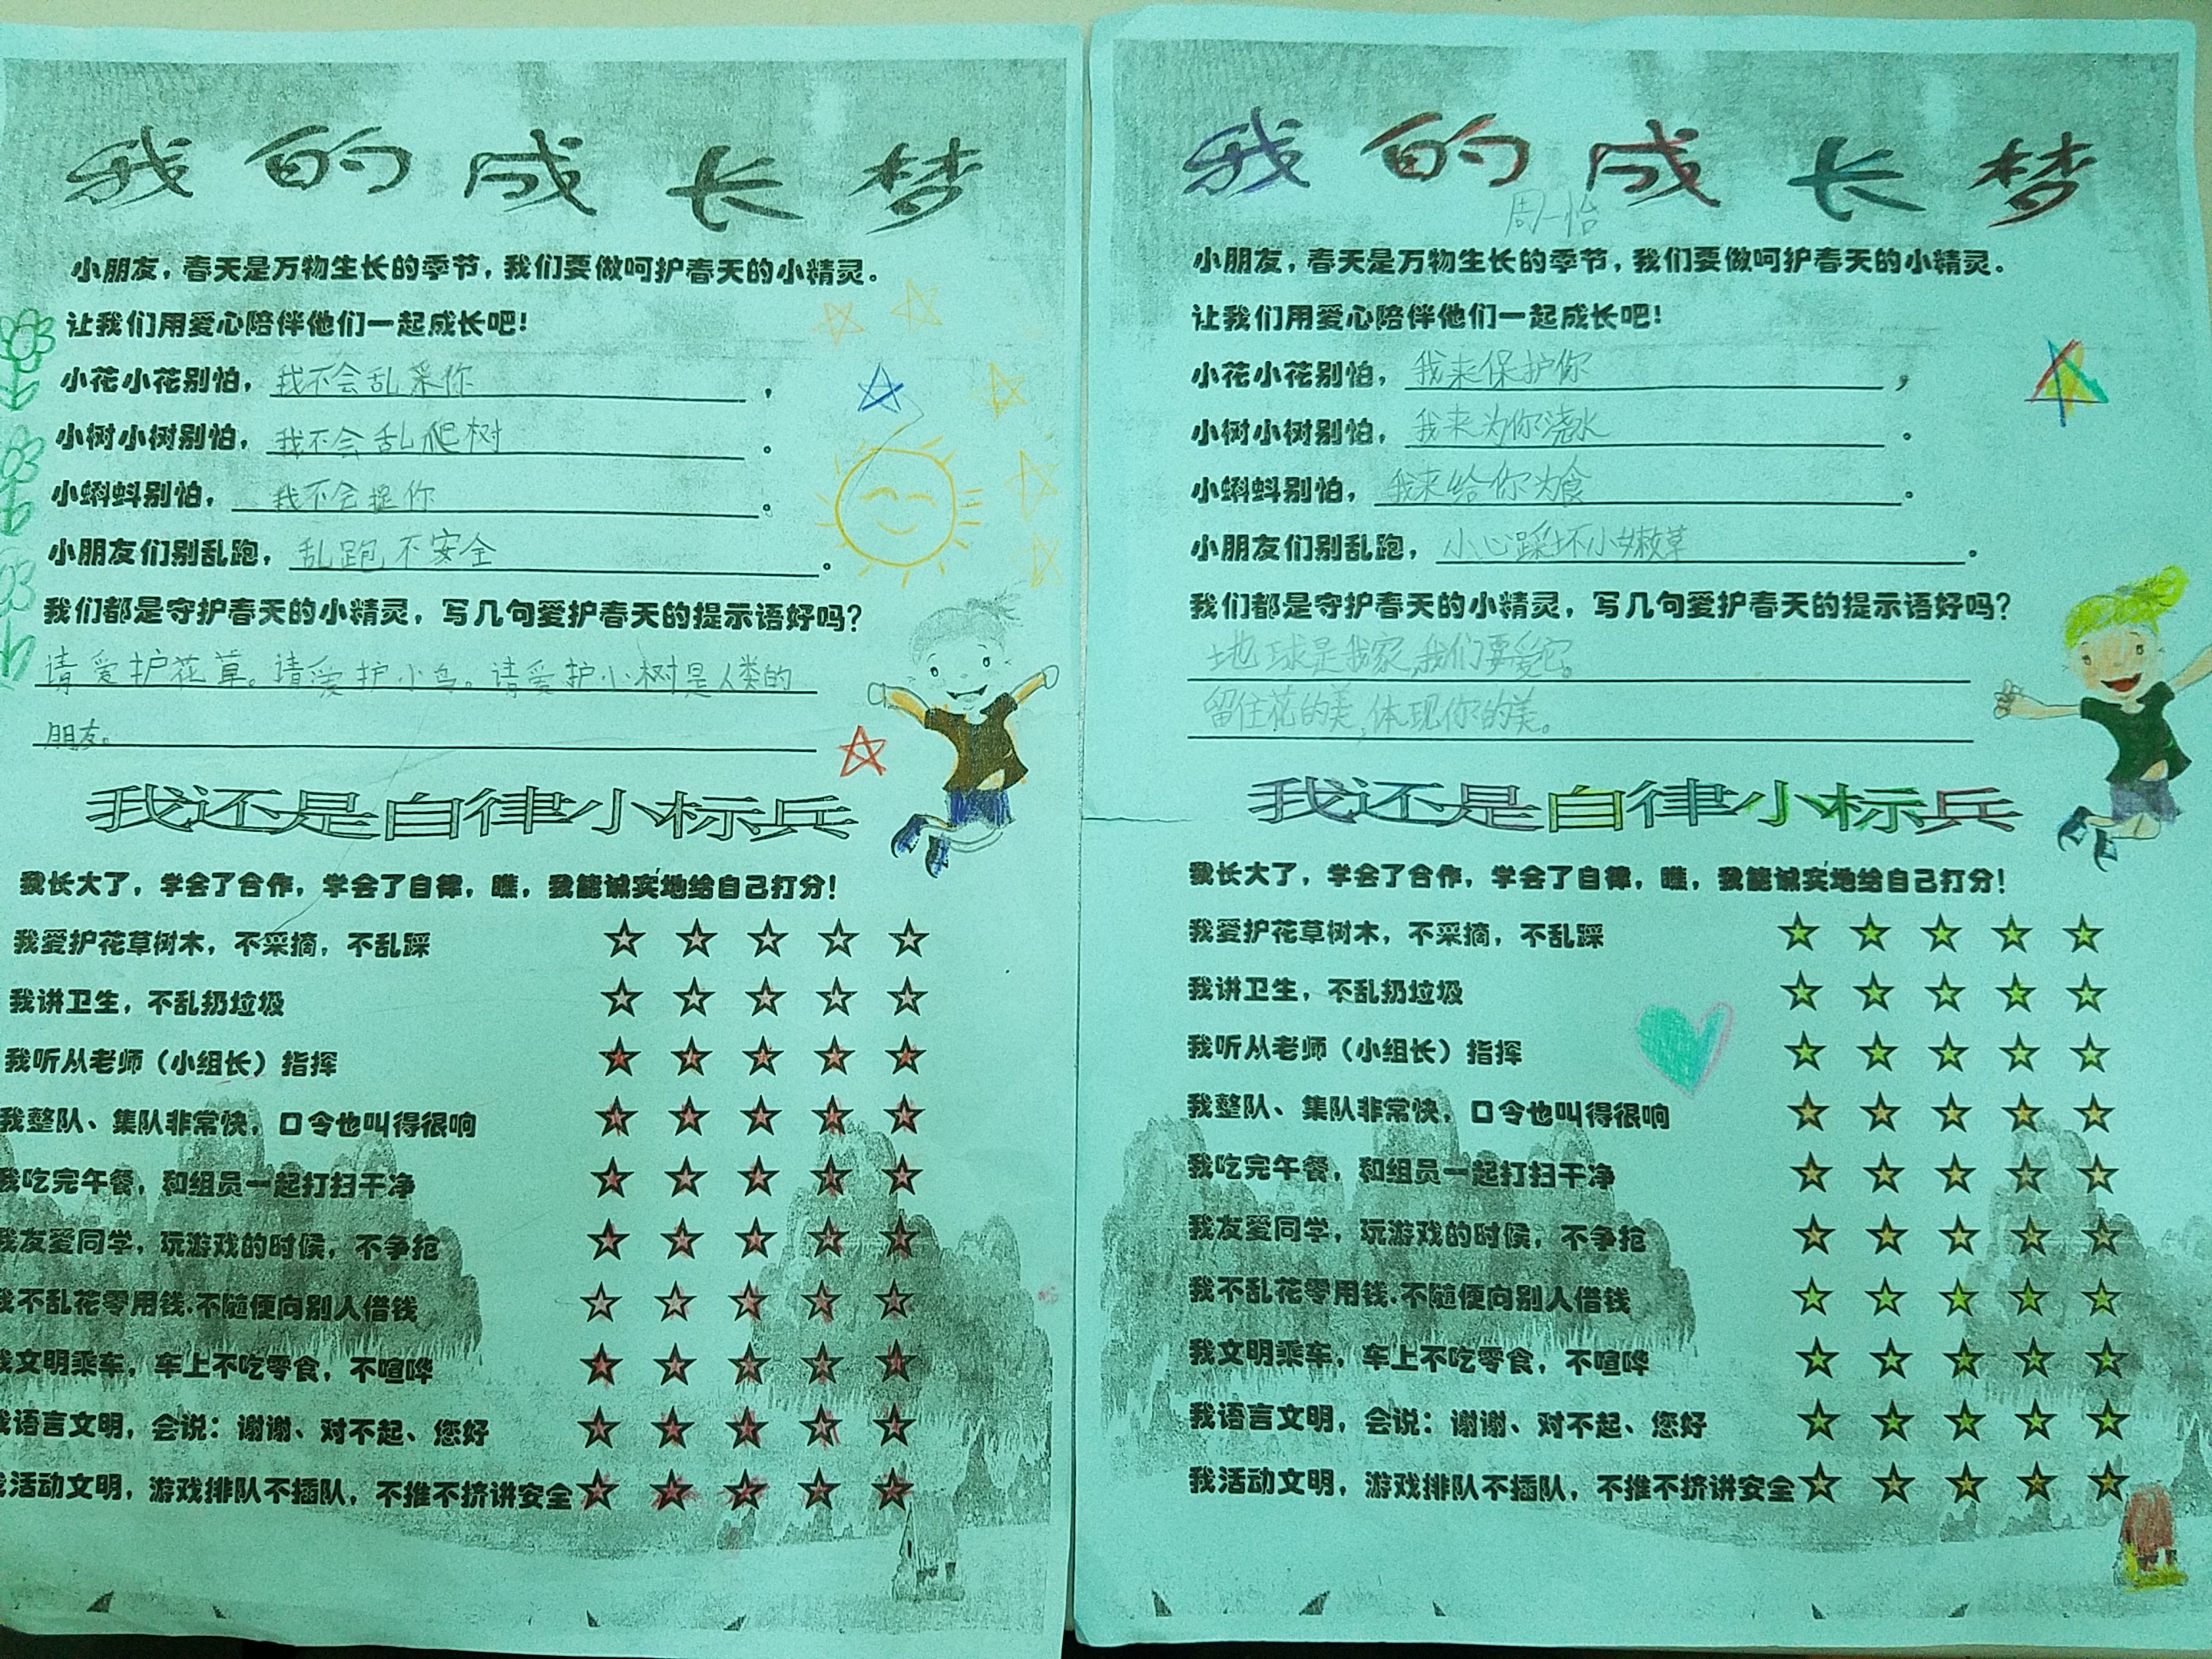 我的成长梦
小朋友，春天是万物生长的季节，我们要做呵护春天的小精灵。
让我们用爱心陪伴他们一起成长吧！
小花小花别怕，我不会乱采你，
小树小树别怕，我不会乱爬树。
小蝌蚪别怕，我不会捉你。
小朋友们别乱跑，乱跑不安全。
我们都是守护春天的小精灵，写几句爱护春天的提示语好吗？
请爱护花草。请爱护小鸟。请爱护小树是人类的
朋友。
我还是自律小标兵
我长大了，学会了合作，学会了自律，瞧，我能诚实地给自己打分！
我爱护花草树木，不采摘，不乱踩
我讲卫生，不乱扔垃圾
我听从老师（小组长）指挥
我整队、集队非常快，口令也叫得很响
我吃完午餐，和组员一起打扫干净
我友爱同学，玩游戏的时候，不争抢
我不乱花零用钱.不随便向别人借钱
我文明乘车，车上不吃零食，不喧哗
我语言文明，会说：谢谢、对不起、您好
我活动文明，游戏排队不插队，不推不挤讲安全
我的成长梦
周一怡
小朋友，春天是万物生长的季节，我们要做呵护春天的小精灵。
让我们用爱心陪伴他们一起成长吧！
小花小花别怕，我来保护你，
小树小树别怕，我来为你浇水。
小蝌蚪别怕，我来给你为食。
小朋友们别乱跑，小心踩坏小嫩草。
我们都是守护春天的小精灵，写几句爱护春天的提示语好吗？
地球是我家，我们要爱它。
留住花的美，体现你的美。
我还是自律小标兵
我长大了，学会了合作，学会了自律，瞧，我能诚实地给自己打分！
我爱护花草树木，不采摘，不乱踩
我讲卫生，不乱扔垃圾
我听从老师（小组长）指挥
我整队、集队非常快，口令也叫得很响
我吃完午餐，和组员一起打扫干净
我友爱同学，玩游戏的时候，不争抢
我不乱花零用钱.不随便向别人借钱
我文明乘车，车上不吃零食，不喧哗
我语言文明，会说：谢谢、对不起、您好
我活动文明，游戏排队不插队，不推不挤讲安全